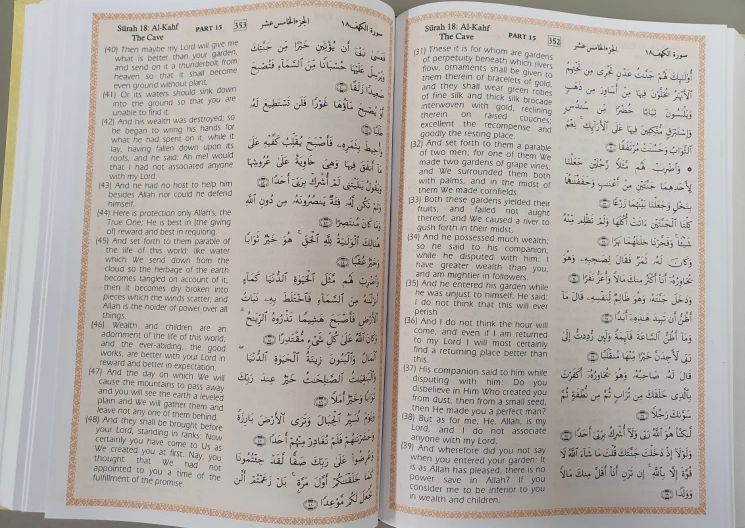 Sūrah 18: Al-Kahf
The Cave
PART 15
352
الجزء الخامس عشر
سورة الكهف ١٨
(31) These it is for whom are gardens
of perpetuity beneath which rivers
flow, ornaments shall be given to
them therein of bracelets of gold,
and they shall wear green robes
of fine silk and thick silk brocade
interwoven with gold, reclining
therein on raised couches;
excellent the recompense and
goodly the resting place.
(32) And set forth to them a parable
of two men, for one of them We
made two gardens of grape vines,
and We surrounded them both
with palms, and in the midst of
them We made cornfields.
(33) Both these gardens yielded their
fruits, and failed not aught
thereof, and We caused a river to
gush forth in their midst,
(34) And he possessed much wealth;
so he said to his companion,
while he disputed with him: I
have greater wealth than you,
and am mightier in followers.
(35) And he entered his garden while
he was unjust to himself. He said:
I do not think that this will ever
perish
(36) And I do not think the hour will
come, and even if I am returned
to my Lord I will most certainly
find a returning place better than
this.
(37) His companion said to him while
disputing with him: Do you
disbelieve in Him Who created you
from dust, then from a small seed,
then He made you a perfect man?
(38) But as for me, He, Allah, is my
Lord, and I do not associate
anyone with my Lord.
(39) And wherefore did you not say
when you entered your garden: It
is as Allah has pleased, there is no
power save in Allah? If you
consider me to be inferior to you
in wealth and children.
أُوْلَٰٓئِكَ لَهُمْ جَنَّٰتُ عَدْنٍ تَجْرِى مِن تَحْتِهِمُ
ٱلْأَنْهَٰرُ يُحَلَّوْنَ فِيهَا مِنْ أَسَاوِرَ مِن ذَهَبٍ
وَيَلْبَسُونَ ثِيَابًا خُضْرًا مِّن سُندُسٍ
وَإِسْتَبْرَقٍ مُّتَّكِـِٔينَ فِيهَا عَلَى ٱلْأَرَآئِكِ ۚ نِعْمَ
ٱلثَّوَابُ وَحَسُنَتْ مُرْتَفَقًا ٣١
۞ وَٱضْرِبْ لَهُم مَّثَلًا رَّجُلَيْنِ جَعَلْنَا
لِأَحَدِهِمَا جَنَّتَيْنِ مِنْ أَعْنَٰبٍ وَحَفَفْنَٰهُمَا
بِنَخْلٍ وَجَعَلْنَا بَيْنَهُمَا زَرْعًا ٣٢
كِلْتَا ٱلْجَنَّتَيْنِ ءَاتَتْ أُكُلَهَا وَلَمْ تَظْلِم مِّنْهُ
شَيْـًٔا ۚ وَفَجَّرْنَا خِلَٰلَهُمَا نَهَرًا ٣٣
وَكَانَ لَهُۥ ثَمَرٌ فَقَالَ لِصَٰحِبِهِۦ وَهُوَ
يُحَاوِرُهُۥٓ أَنَا۠ أَكْثَرُ مِنكَ مَالًا وَأَعَزُّ نَفَرًا ٣٤
وَدَخَلَ جَنَّتَهُۥ وَهُوَ ظَالِمٌ لِّنَفْسِهِۦ قَالَ مَآ
أَظُنُّ أَن تَبِيدَ هَٰذِهِۦٓ أَبَدًا ٣٥
وَمَآ أَظُنُّ ٱلسَّاعَةَ قَآئِمَةً وَلَئِن رُّدِدتُّ إِلَىٰ
رَبِّى لَأَجِدَنَّ خَيْرًا مِّنْهَا مُنقَلَبًا ٣٦
قَالَ لَهُۥ صَاحِبُهُۥ وَهُوَ يُحَاوِرُهُۥٓ أَكَفَرْتَ
بِٱلَّذِى خَلَقَكَ مِن تُرَابٍ ثُمَّ مِن نُّطْفَةٍ ثُمَّ
سَوَّىٰكَ رَجُلًا ٣٧
لَّٰكِنَّا۠ هُوَ ٱللَّهُ رَبِّى وَلَآ أُشْرِكُ بِرَبِّىٓ أَحَدًا ٣٨
وَلَوْلَآ إِذْ دَخَلْتَ جَنَّتَكَ قُلْتَ مَا شَآءَ ٱللَّهُ لَا
قُوَّةَ إِلَّا بِٱللَّهِ ۚ إِن تَرَنِ أَنَا۠ أَقَلَّ مِنكَ مَالًا
وَوَلَدًا ٣٩
Sūrah 18: Al-Kahf
The Cave
PART 15
353
الجزء الخامس عشر
سورة الكهف ١٨
(40) Then maybe my Lord will give me
what is better than your garden,
and send on it a thunderbolt from
heaven so that it shall become
even ground without plant.
(41) Or its waters should sink down
into the ground so that you are
unable to find it.
(42) And his wealth was destroyed; so
he began to wring his hands for
what he had spent on it, while it
lay, having fallen down upon its
roofs, and he said: Ah me! would
that I had not associated anyone
with my Lord.
(43) And he had no host to help him
besides Allah nor could he defend
himself.
(44) Here is protection only Allah's, the
True One; He is best in (the giving
of) reward and best in requiting.
(45) And set forth to them parable of
the life of this world: like water
which We send down from the
cloud so the herbage of the earth
becomes tangled on account of it,
then it becomes dry broken into
pieces which the winds scatter; and
Allah is the holder of power over all
things.
(46) Wealth and children are an
adornment of the life of this world;
and the ever-abiding, the good
works, are better with your Lord in
reward and better in expectation.
(47) And the day on which We will
cause the mountains to pass away
and you will see the earth a leveled
plain and We will gather them and
leave not any one of them behind.
(48) And they shall be brought before
your Lord, standing in ranks: Now
certainly you have come to Us as
We created you at first. Nay, you
thought that We had not
appointed to you a time of the
fulfillment of the promise.
فَعَسَىٰ رَبِّىٓ أَن يُؤْتِيَنِ خَيْرًا مِّن جَنَّتِكَ
وَيُرْسِلَ عَلَيْهَا حُسْبَانًا مِّنَ ٱلسَّمَآءِ فَتُصْبِحَ
صَعِيدًا زَلَقًا ٤٠
أَوْ يُصْبِحَ مَآؤُهَا غَوْرًا فَلَن تَسْتَطِيعَ لَهُۥ
طَلَبًا ٤١
وَأُحِيطَ بِثَمَرِهِۦ فَأَصْبَحَ يُقَلِّبُ كَفَّيْهِ عَلَىٰ
مَآ أَنفَقَ فِيهَا وَهِىَ خَاوِيَةٌ عَلَىٰ عُرُوشِهَا
وَيَقُولُ يَٰلَيْتَنِى لَمْ أُشْرِكْ بِرَبِّىٓ أَحَدًا ٤٢
وَلَمْ تَكُن لَّهُۥ فِئَةٌ يَنصُرُونَهُۥ مِن دُونِ ٱللَّهِ
وَمَا كَانَ مُنتَصِرًا ٤٣
هُنَالِكَ ٱلْوَلَٰيَةُ لِلَّهِ ٱلْحَقِّ ۚ هُوَ خَيْرٌ ثَوَابًا
وَخَيْرٌ عُقْبًا ٤٤
وَٱضْرِبْ لَهُم مَّثَلَ ٱلْحَيَوٰةِ ٱلدُّنْيَا كَمَآءٍ
أَنزَلْنَٰهُ مِنَ ٱلسَّمَآءِ فَٱخْتَلَطَ بِهِۦ نَبَاتُ
ٱلْأَرْضِ فَأَصْبَحَ هَشِيمًا تَذْرُوهُ ٱلرِّيَٰحُ ۗ
وَكَانَ ٱللَّهُ عَلَىٰ كُلِّ شَىْءٍ مُّقْتَدِرًا ٤٥
ٱلْمَالُ وَٱلْبَنُونَ زِينَةُ ٱلْحَيَوٰةِ ٱلدُّنْيَا ۖ
وَٱلْبَٰقِيَٰتُ ٱلصَّٰلِحَٰتُ خَيْرٌ عِندَ رَبِّكَ
ثَوَابًا وَخَيْرٌ أَمَلًا ٤٦
وَيَوْمَ نُسَيِّرُ ٱلْجِبَالَ وَتَرَى ٱلْأَرْضَ بَارِزَةً
وَحَشَرْنَٰهُمْ فَلَمْ نُغَادِرْ مِنْهُمْ أَحَدًا ٤٧
وَعُرِضُوا۟ عَلَىٰ رَبِّكَ صَفًّا لَّقَدْ جِئْتُمُونَا
كَمَا خَلَقْنَٰكُمْ أَوَّلَ مَرَّةٍۭ ۚ بَلْ زَعَمْتُمْ أَلَّن
نَّجْعَلَ لَكُم مَّوْعِدًا ٤٨